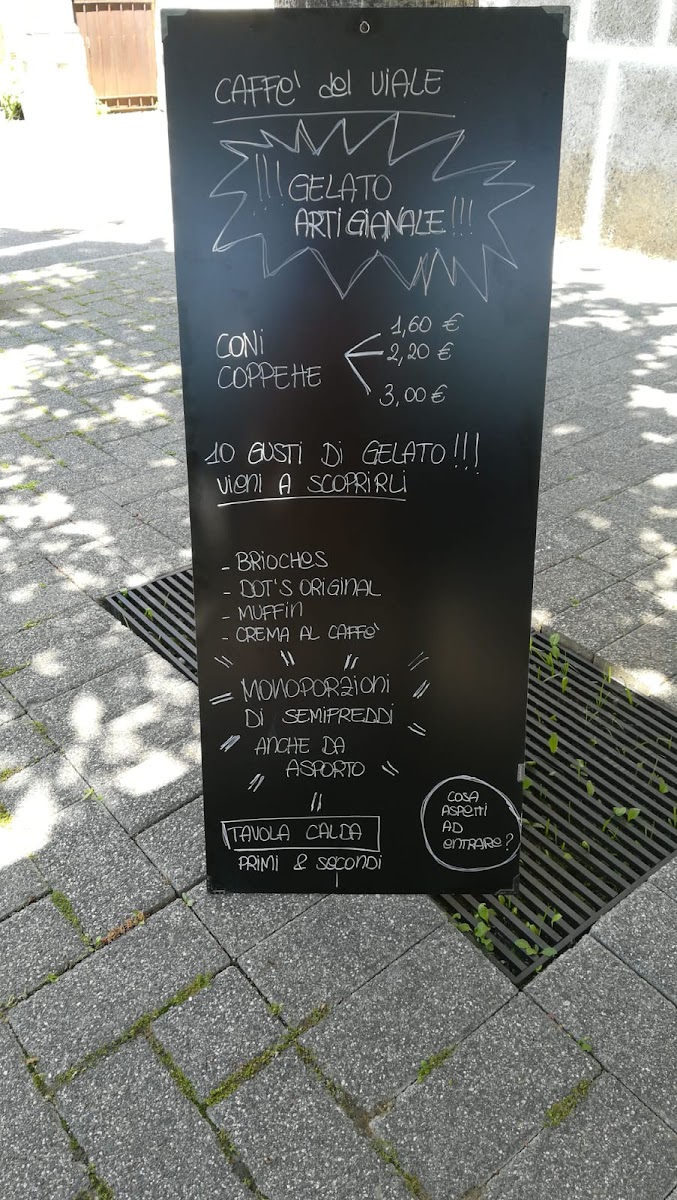 CAFFe' del VIALE
!!! GELATO
ARTIGIANALE!!!
CONi
COPPETTE
1,60 €
2,20 €
3,00 €
10 GUSTI Di GELATO!!!
Vieni A SCOPRIRLI
- BRIOCHES
- DOT'S ORIGINAL
- MUFFIN
- CREMA AL CAFFe'
MONOPORZIONI
DI SEMIFREDDI
ANCHE DA
ASPORTO
TAVOLA CALDA
PRIMI & SeCONDI
COSA
ASPETTI
AD
ENTRARE?